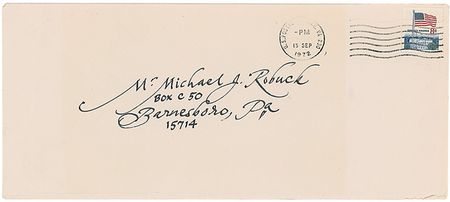 PM
15 SEP
1972
8¢
Mr Michael J. Robuck
Box C 50
Barnesboro, Pa
15714